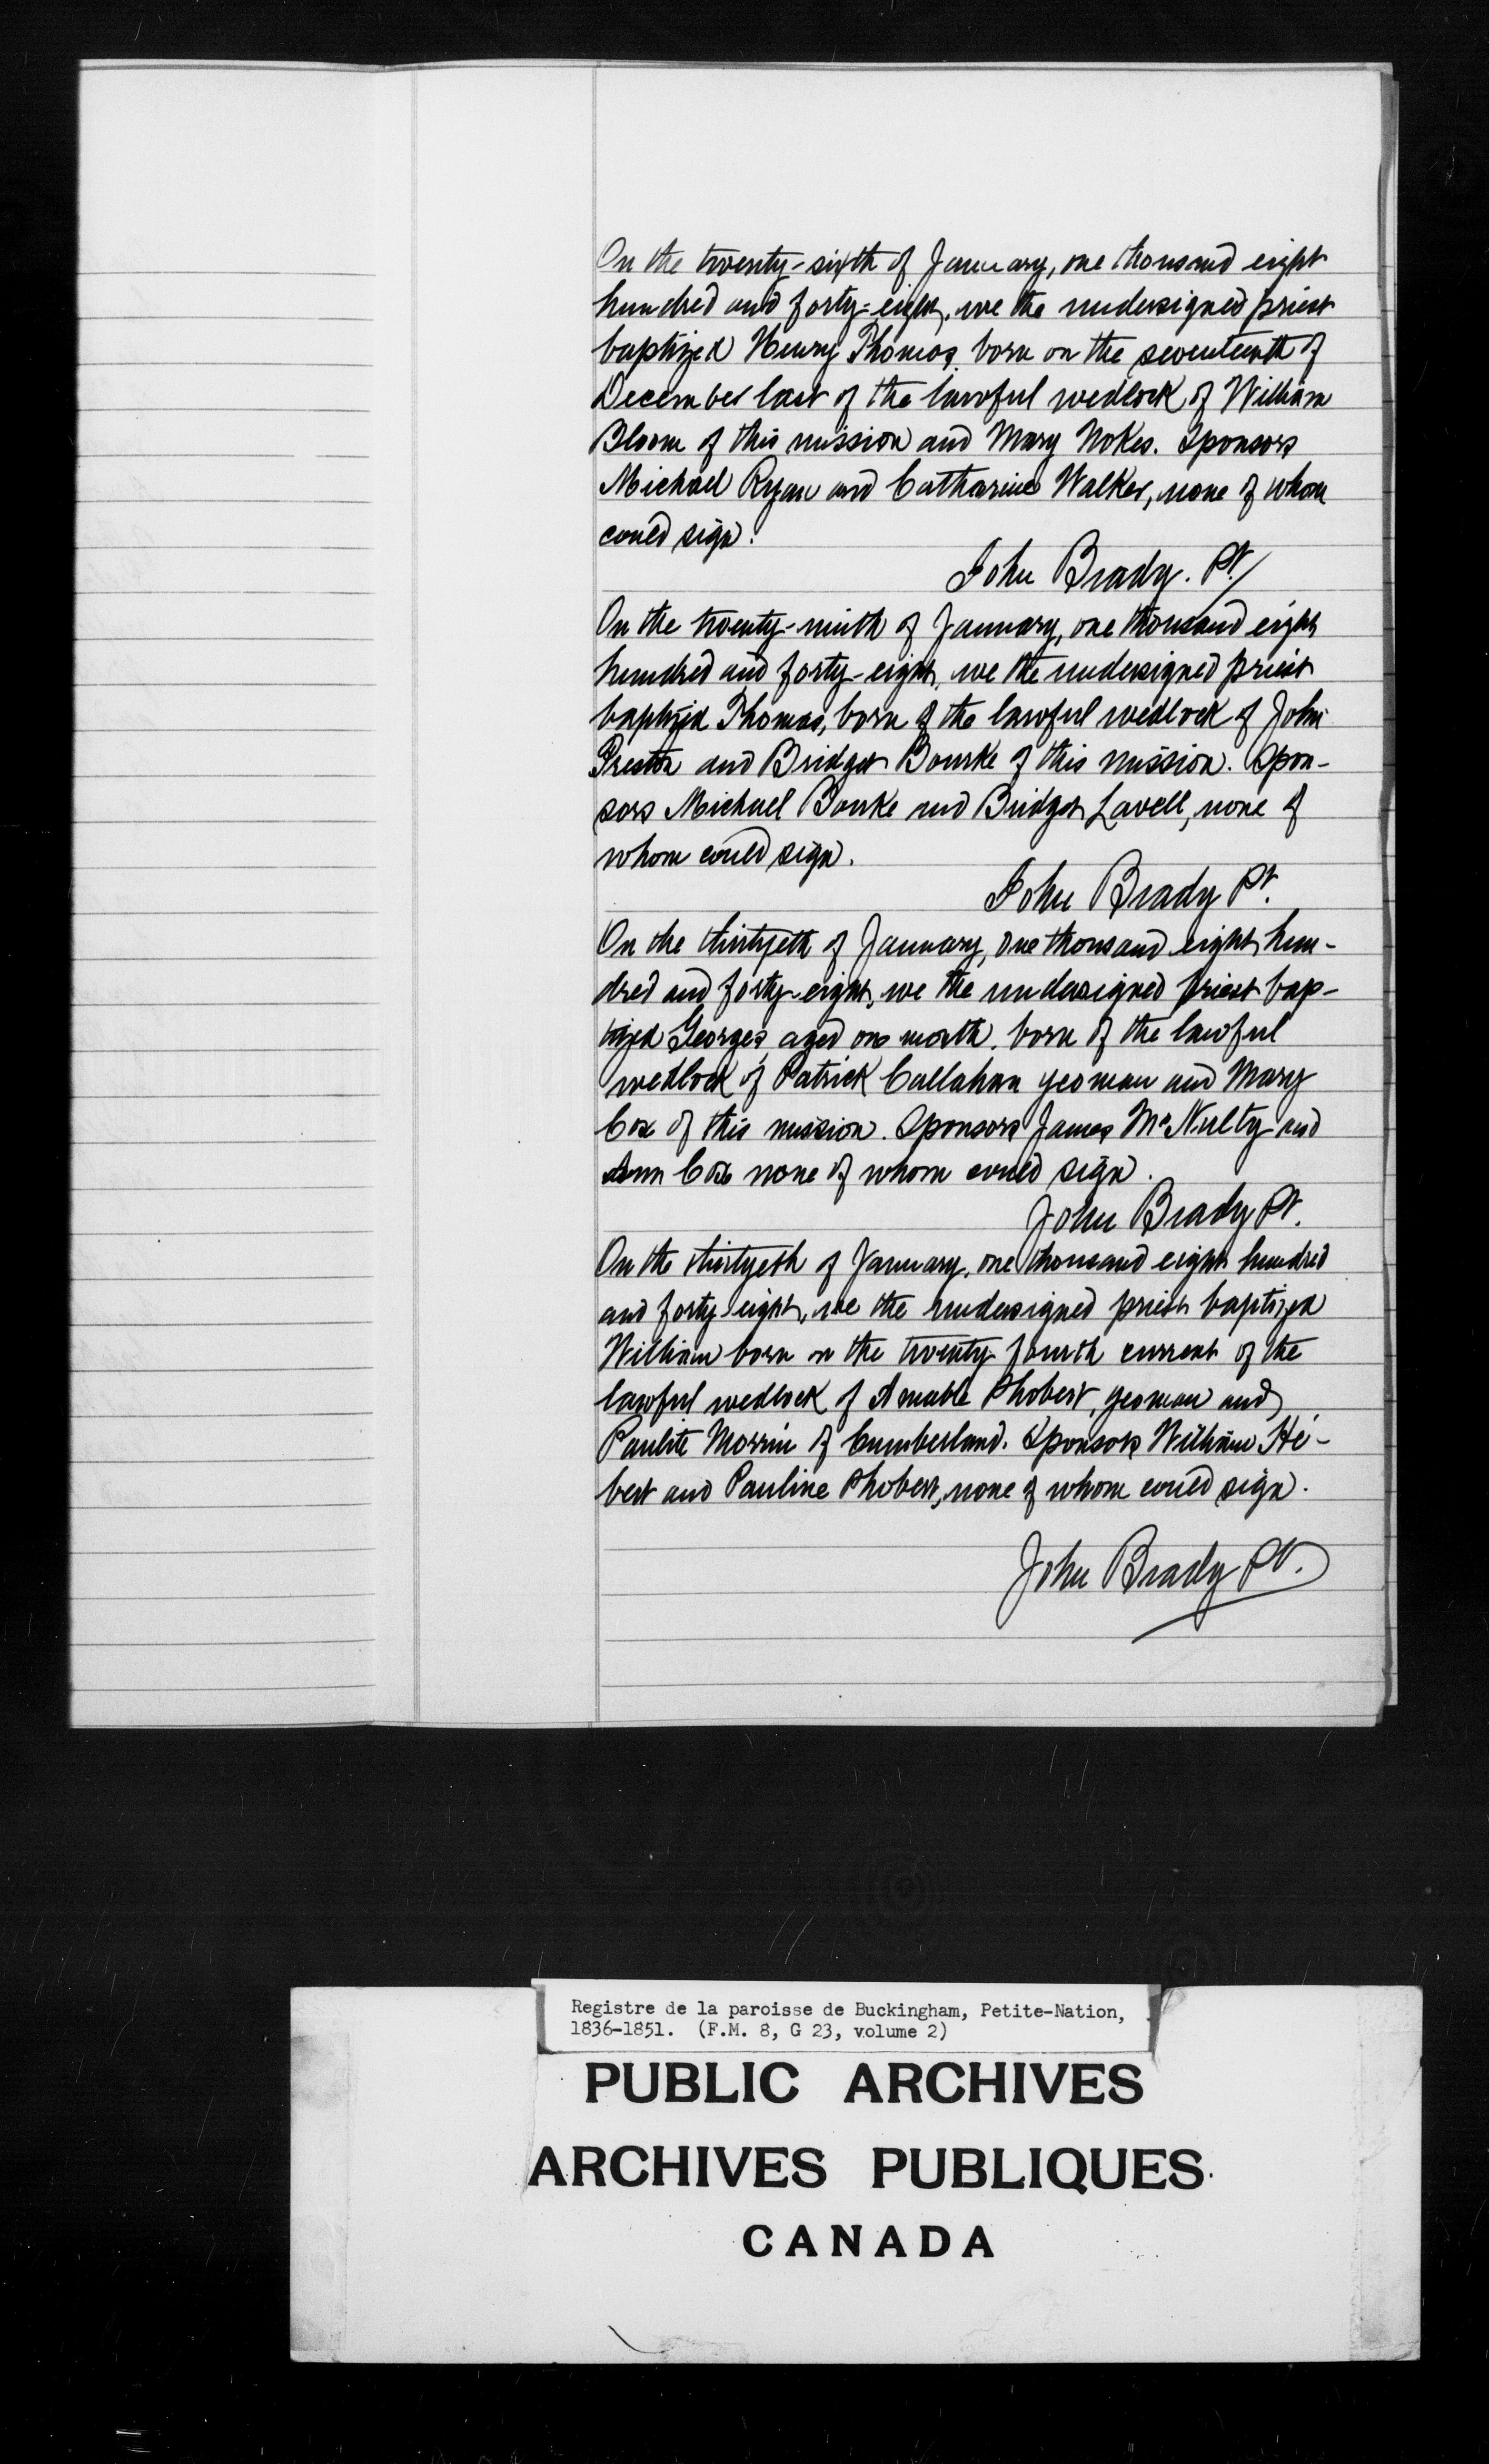 On the twenty-sixth of January, one thousand eight
hundred and forty-eight, we the undersigned priest
baptized Henry Thomas, born on the seventeenth of
December last of the lawful wedlock of William
Bloom of this mission and Mary Nokes. Sponsors
Michael Ryan and Catharine Walker, none of whom
could sign.
John Brady. Pt.
On the twenty-ninth of January, one thousand eight
hundred and forty-eight, we the undersigned priest
baptized Thomas, born of the lawful wedlock of John
Preston and Bridget Bourke of this mission. Spon-
sors Michael Bourke and Bridget Lavell, none of
whom could sign.
John Brady Pt.
On the thirtyeth of January, one thousand eight hun-
dred and forty-eight, we the undersigned priest bap-
tized Georges, aged one month, born of the lawful
wedlock of Patrick Callahan yeoman and Mary
Cox of this mission. Sponsors James McNulty and
Ann Cox none of whom could sign.
John Brady Pt.
On the thirtyeth of January, one thousand eight hundred
and forty-eight, we the undersigned priest baptized
William born on the twenty-fourth current of the
lawful wedlock of Amable Phobert, yeoman and
Paulite Morrin of Cumberland. Sponsors William Hé-
bert and Pauline Phobert, none of whom could sign.
John Brady Pt.
Registre de la paroisse de Buckingham, Petite-Nation,
1836-1851. (F.M. 8, G 23, volume 2)
PUBLIC ARCHIVES
ARCHIVES PUBLIQUES
CANADA